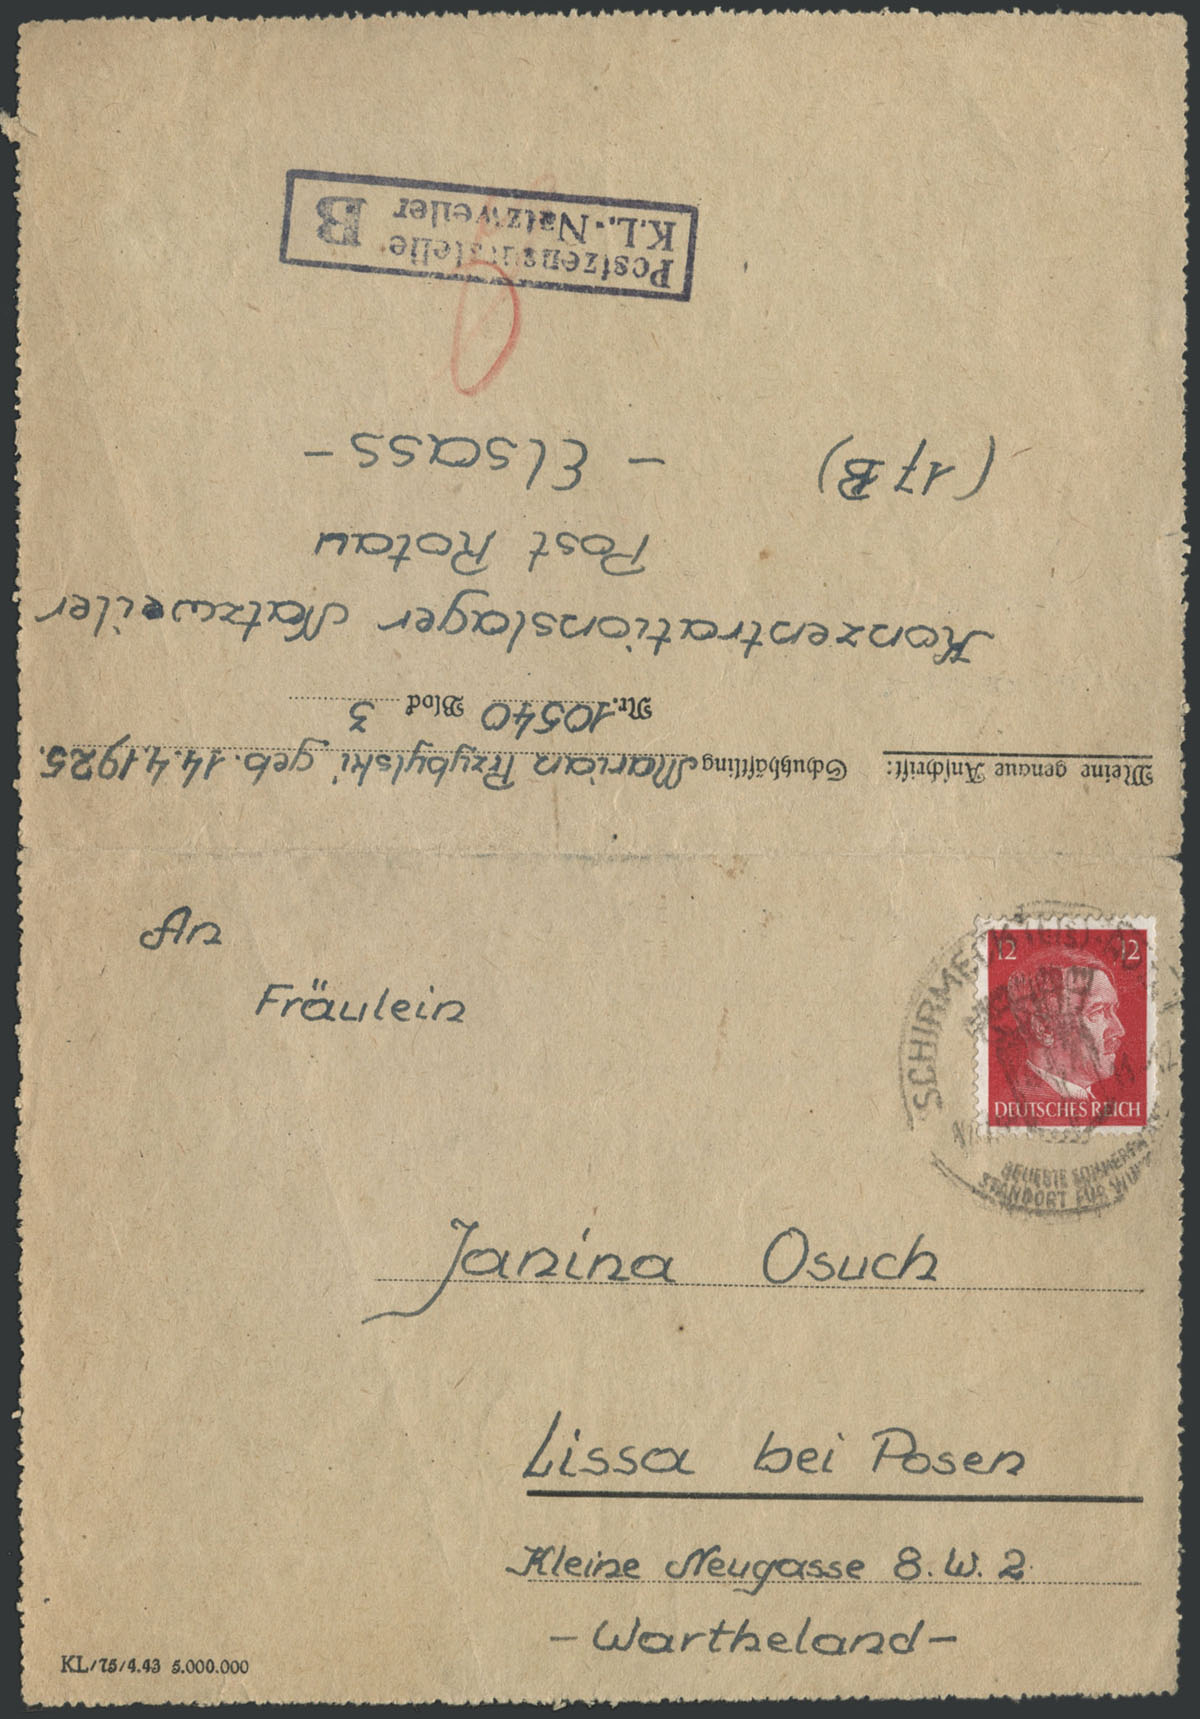 Postzensurstelle
K.L.-Natzweiler B
(17B) - Elsass -
Post Rotau
Konzentrationslager Natzweiler
Nr. 10540 Block 3
Meine genaue Anschrift: Schutzhäftling Marian Przybylski geb. 14.4.1925.
An
Fräulein
12 12
DEUTSCHES REICH
SCHIRMECK (ELS)
BELIEBTE SOMMERFR
STANDORT FÜR
Janina Osuch
Lissa bei Posen
Kleine Neugasse 8. W. 2
- Wartheland -
KL/75/4.43 5.000.000